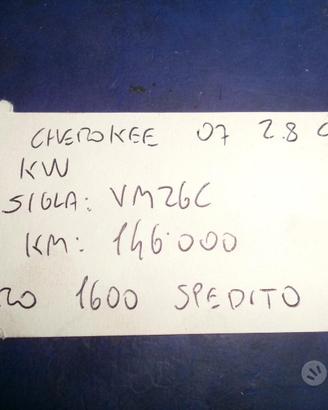 CHEROKEE 07 2.8 C
KW
SIGLA: VM26C
KM: 146.000
ZO 1600 SPEDITO